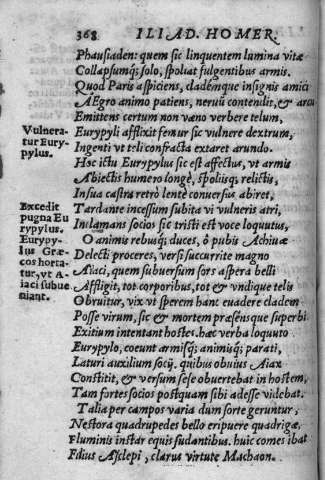 368 ILIAD. HOMER.
Phausiaden: quem sic linquentem lumina vitæ
Collapsumq; solo, spoliat fulgentibus armis.
Quod Paris aspiciens, clademque insignis amici
AEgro animo patiens, neruũ contendit, & arcu
Emittens certum non vano verbere telum,
Vulnera-
tur Eury-
pylus.
Eurypyli afflixit femur sic vulnere dextrum,
Ingenti vt teli confracta extaret arundo.
Hoc ictu Eurypylus sic est affectus, vt armis
Abiectis humero longè, spolijsq; relictis,
In sua castra retrò lentè conuersus abiret,
Excedit
pugna Eu
rypylus.
Tardante incessum subita vi vulneris atri,
Inclamans socios sic tristi est voce loquutus,
Eurypy-
lus Græ-
cos horta-
tur, vt A-
iaci subue
niant.
O animis rebusq; duces, ô pubis Achiuæ
Delecti proceres, versi succurrite magno
Aiaci, quem subuersum sors aspera belli
Affligit, tot corporibus, tot & vndique telis
Obruitur, vix vt sperem hanc euadere cladem
Posse virum, sic & mortem præsensque superbi
Exitium intentant hostes. hæc verba loquuto
Eurypylo, coeunt armisq; animisq; parati,
Laturi auxilium socij. quibus obuius Aiax
Constitit, & versum sese obuertebat in hostem,
Tam fortes socios postquam sibi adesse videbat.
Talia per campos varia dum sorte geruntur,
Nestora quadrupedes bello eripuere quadrigæ,
Fluminis instar equis sudantibus. huic comes ibat
Filius Asclepi, clarus virtute Machaon.